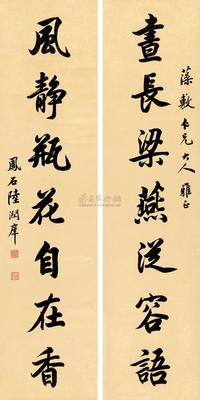 藻敷仁兄大人雅正
晝長梁燕從容語
風静瓶花自在香
鳳石陸潤庠